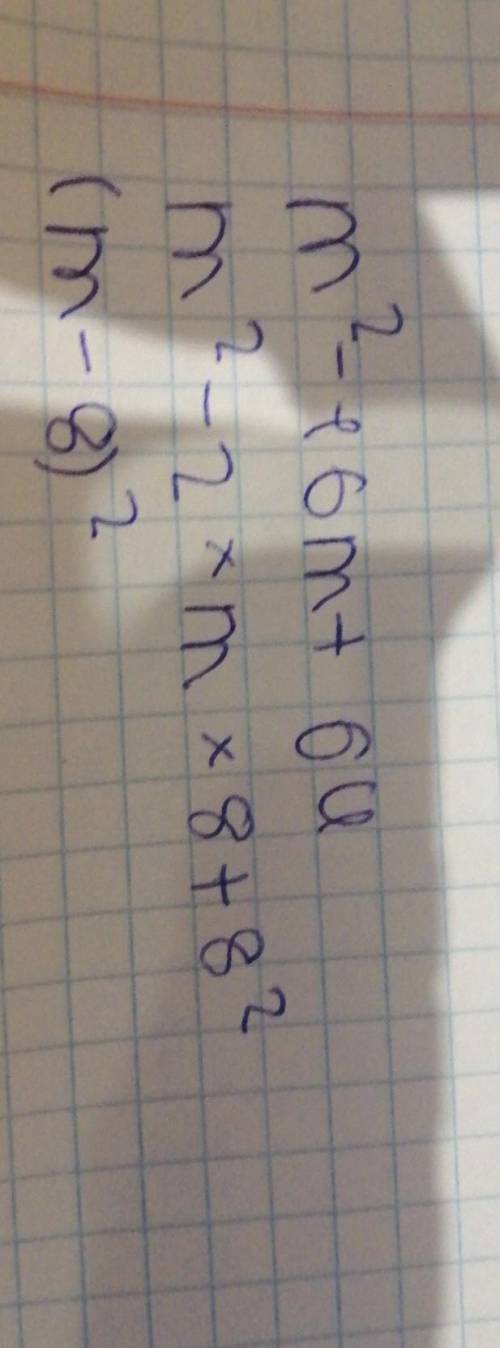 m² - 16m + 64
m² - 2 × m × 8 + 8²
(m - 8)²